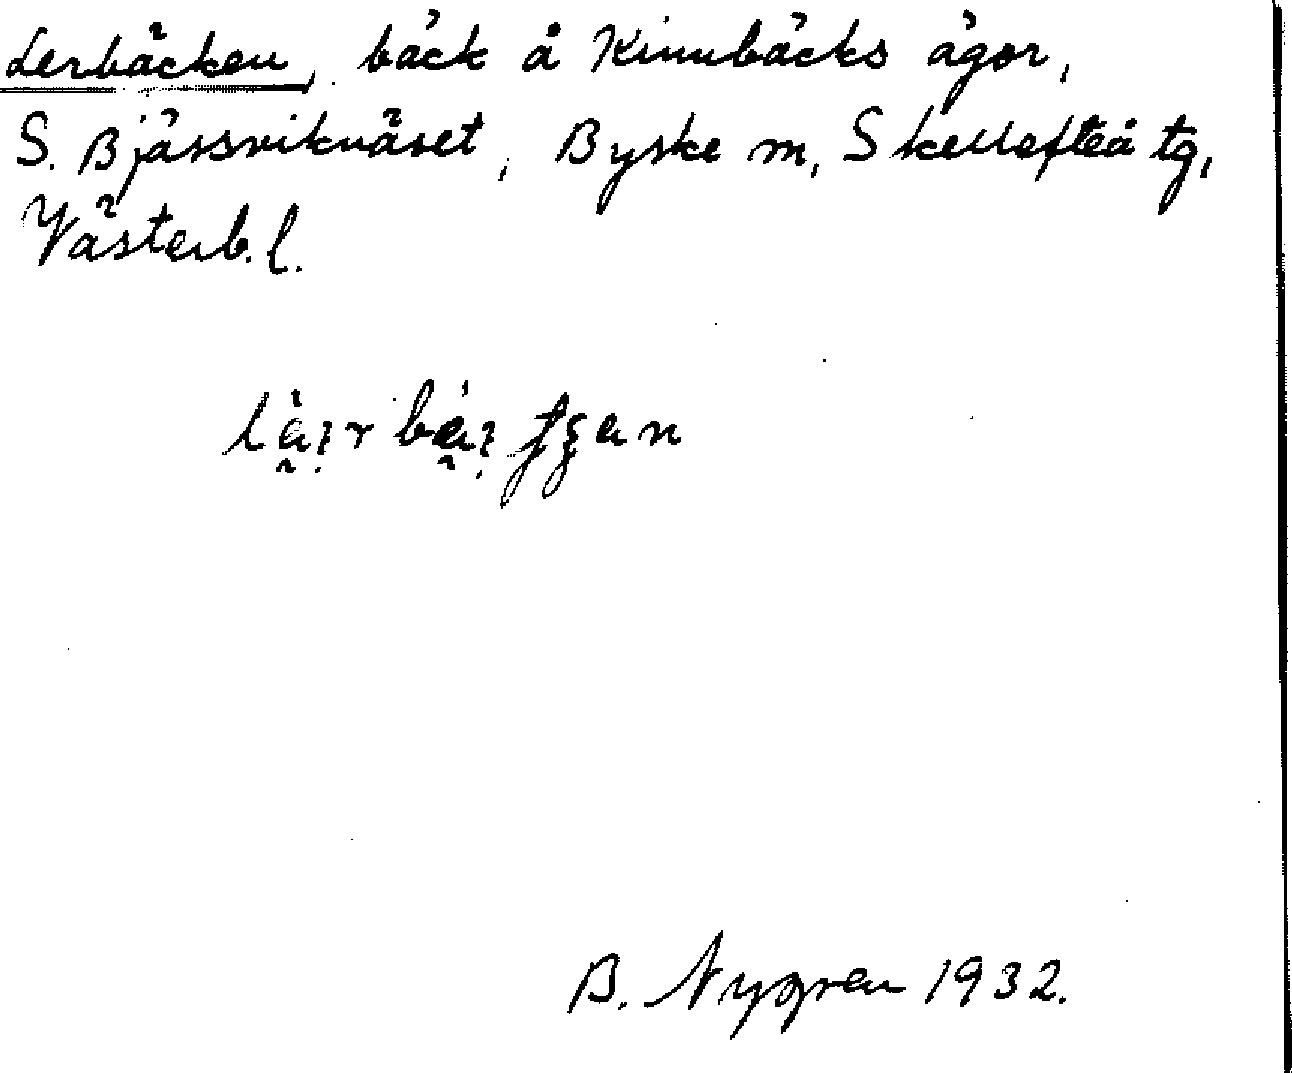 Lerbäcken, bäck å Kinnbäcks ägor,
S. Bjässviknäset, Byske sn, Skellefteå tg,
Västerb. l.
B. Nygren 1932.